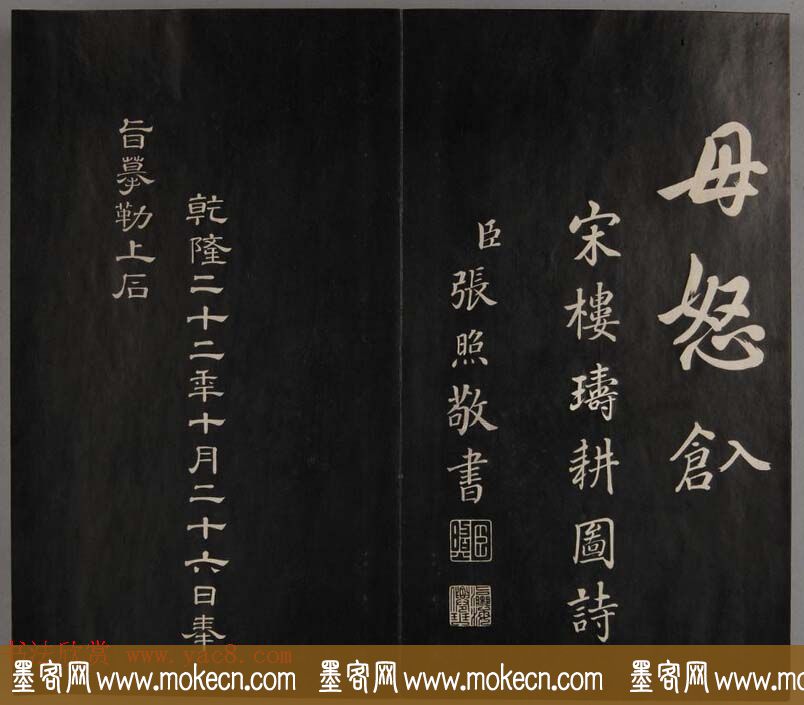 毋怒 入倉
宋樓璹耕圖詩
臣張照敬書
乾隆二十二年十月二十六日奉
旨摹勒上石
书法欣赏 www.yac8.com
墨客网 www.mokecn.com 墨客网 www.mokecn.com 墨客网 www.mokecn.com